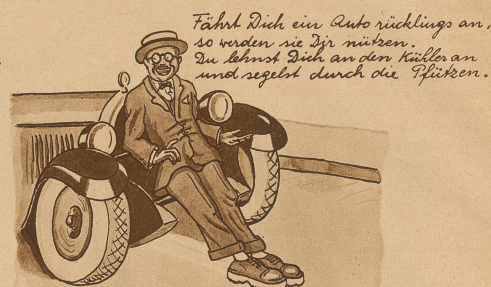 Fährt Dich ein Auto rücklings an,
so werden sie Dir nützen.
Du lehnst Dich an den Kühler an
und segelst durch die Pfützen.